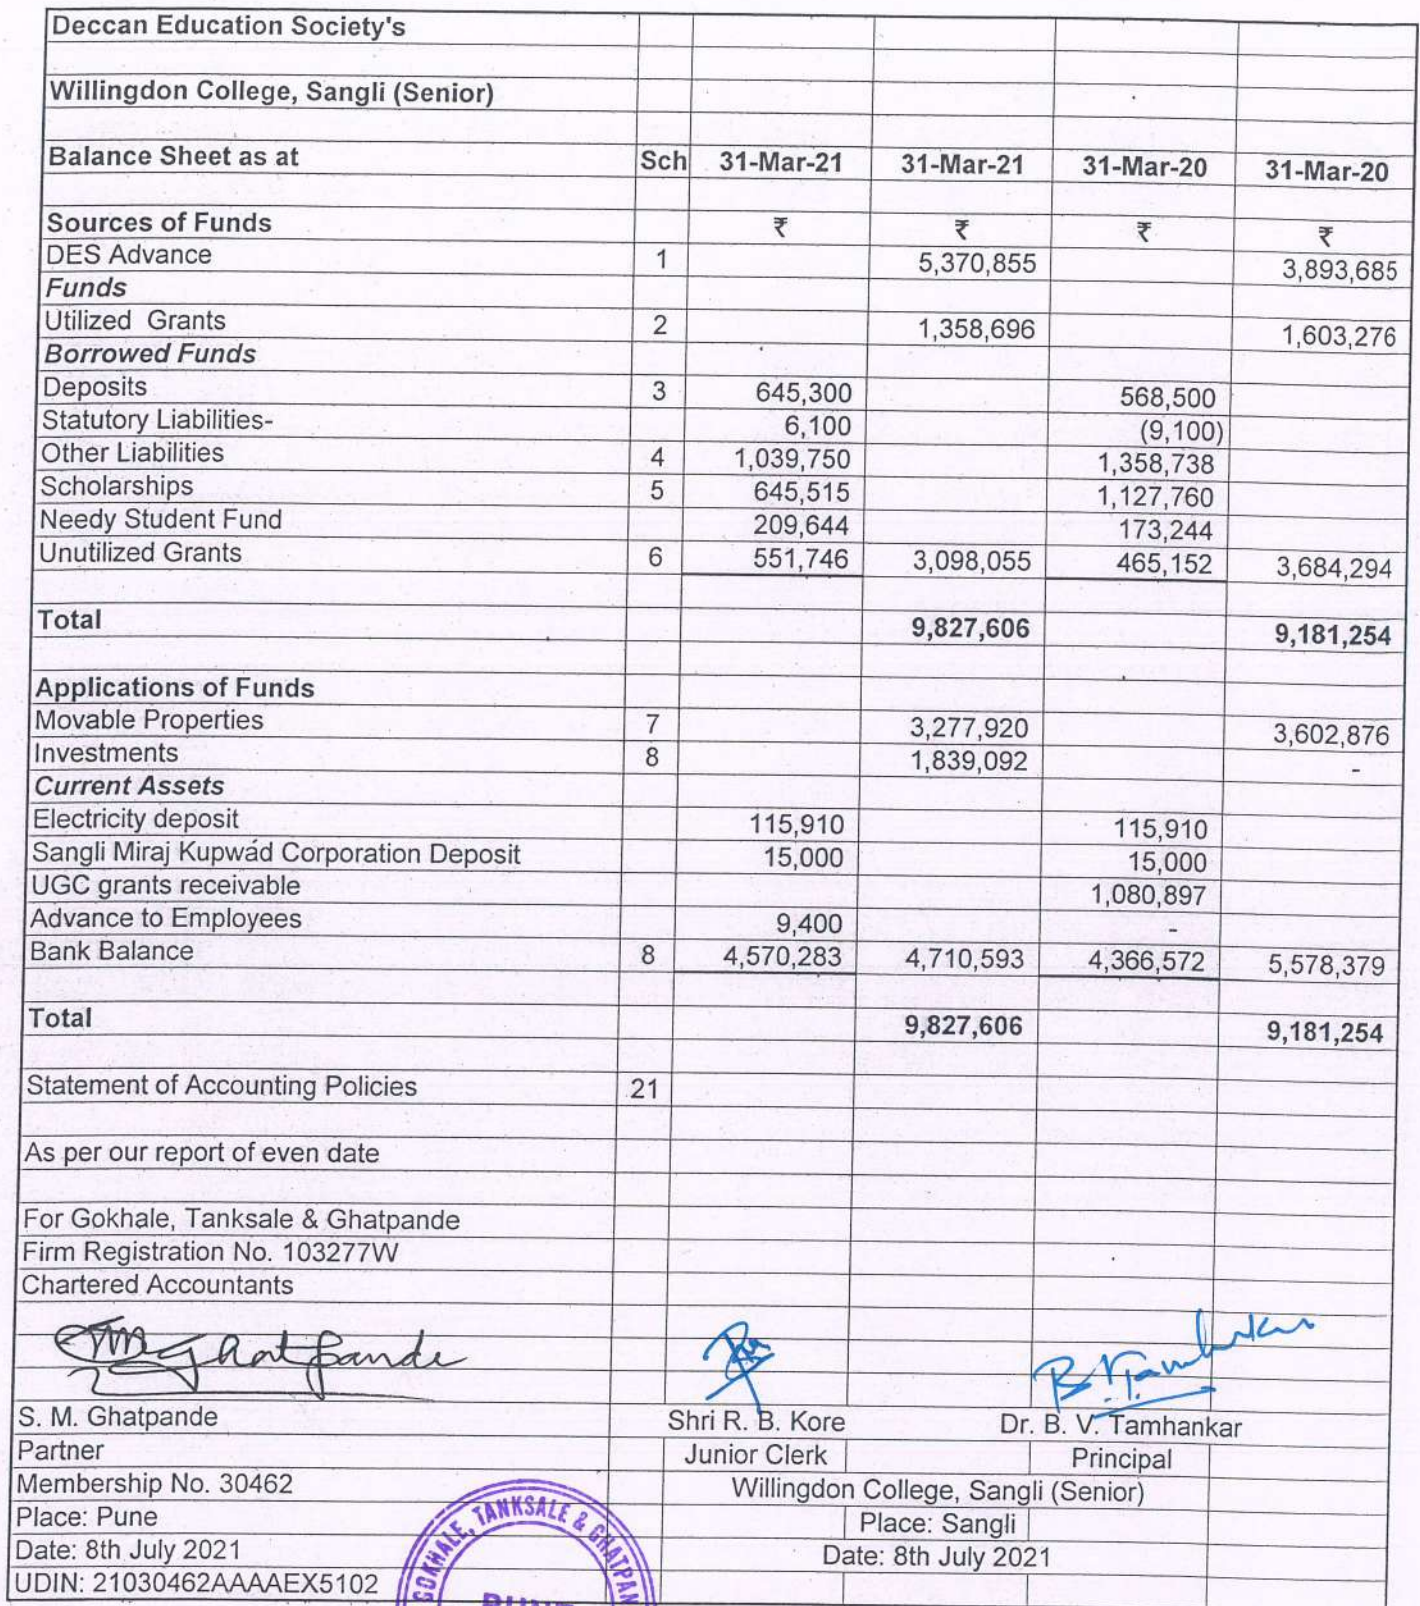 Deccan Education Society's
Willingdon College, Sangli (Senior)
Balance Sheet as at Sch 31-Mar-21 31-Mar-21 31-Mar-20 31-Mar-20
Sources of Funds ₹ ₹ ₹ ₹
DES Advance 1 5,370,855 3,893,685
Funds
Utilized Grants 2 1,358,696 1,603,276
Borrowed Funds
Deposits 3 645,300 568,500
Statutory Liabilities- 6,100 (9,100)
Other Liabilities 4 1,039,750 1,358,738
Scholarships 5 645,515 1,127,760
Needy Student Fund 209,644 173,244
Unutilized Grants 6 551,746 3,098,055 465,152 3,684,294
Total 9,827,606 9,181,254
Applications of Funds
Movable Properties 7 3,277,920 3,602,876
Investments 8 1,839,092 -
Current Assets
Electricity deposit 115,910 115,910
Sangli Miraj Kupwad Corporation Deposit 15,000 15,000
UGC grants receivable 1,080,897
Advance to Employees 9,400 -
Bank Balance 8 4,570,283 4,710,593 4,366,572 5,578,379
Total 9,827,606 9,181,254
Statement of Accounting Policies 21
As per our report of even date
For Gokhale, Tanksale & Ghatpande
Firm Registration No. 103277W
Chartered Accountants
S. M. Ghatpande Shri R. B. Kore Dr. B. V. Tamhankar
Partner Junior Clerk Principal
Membership No. 30462 Willingdon College, Sangli (Senior)
Place: Pune Place: Sangli
Date: 8th July 2021 Date: 8th July 2021
UDIN: 21030462AAAAEX5102
GOKHALE, TANKSALE & GHATPAN